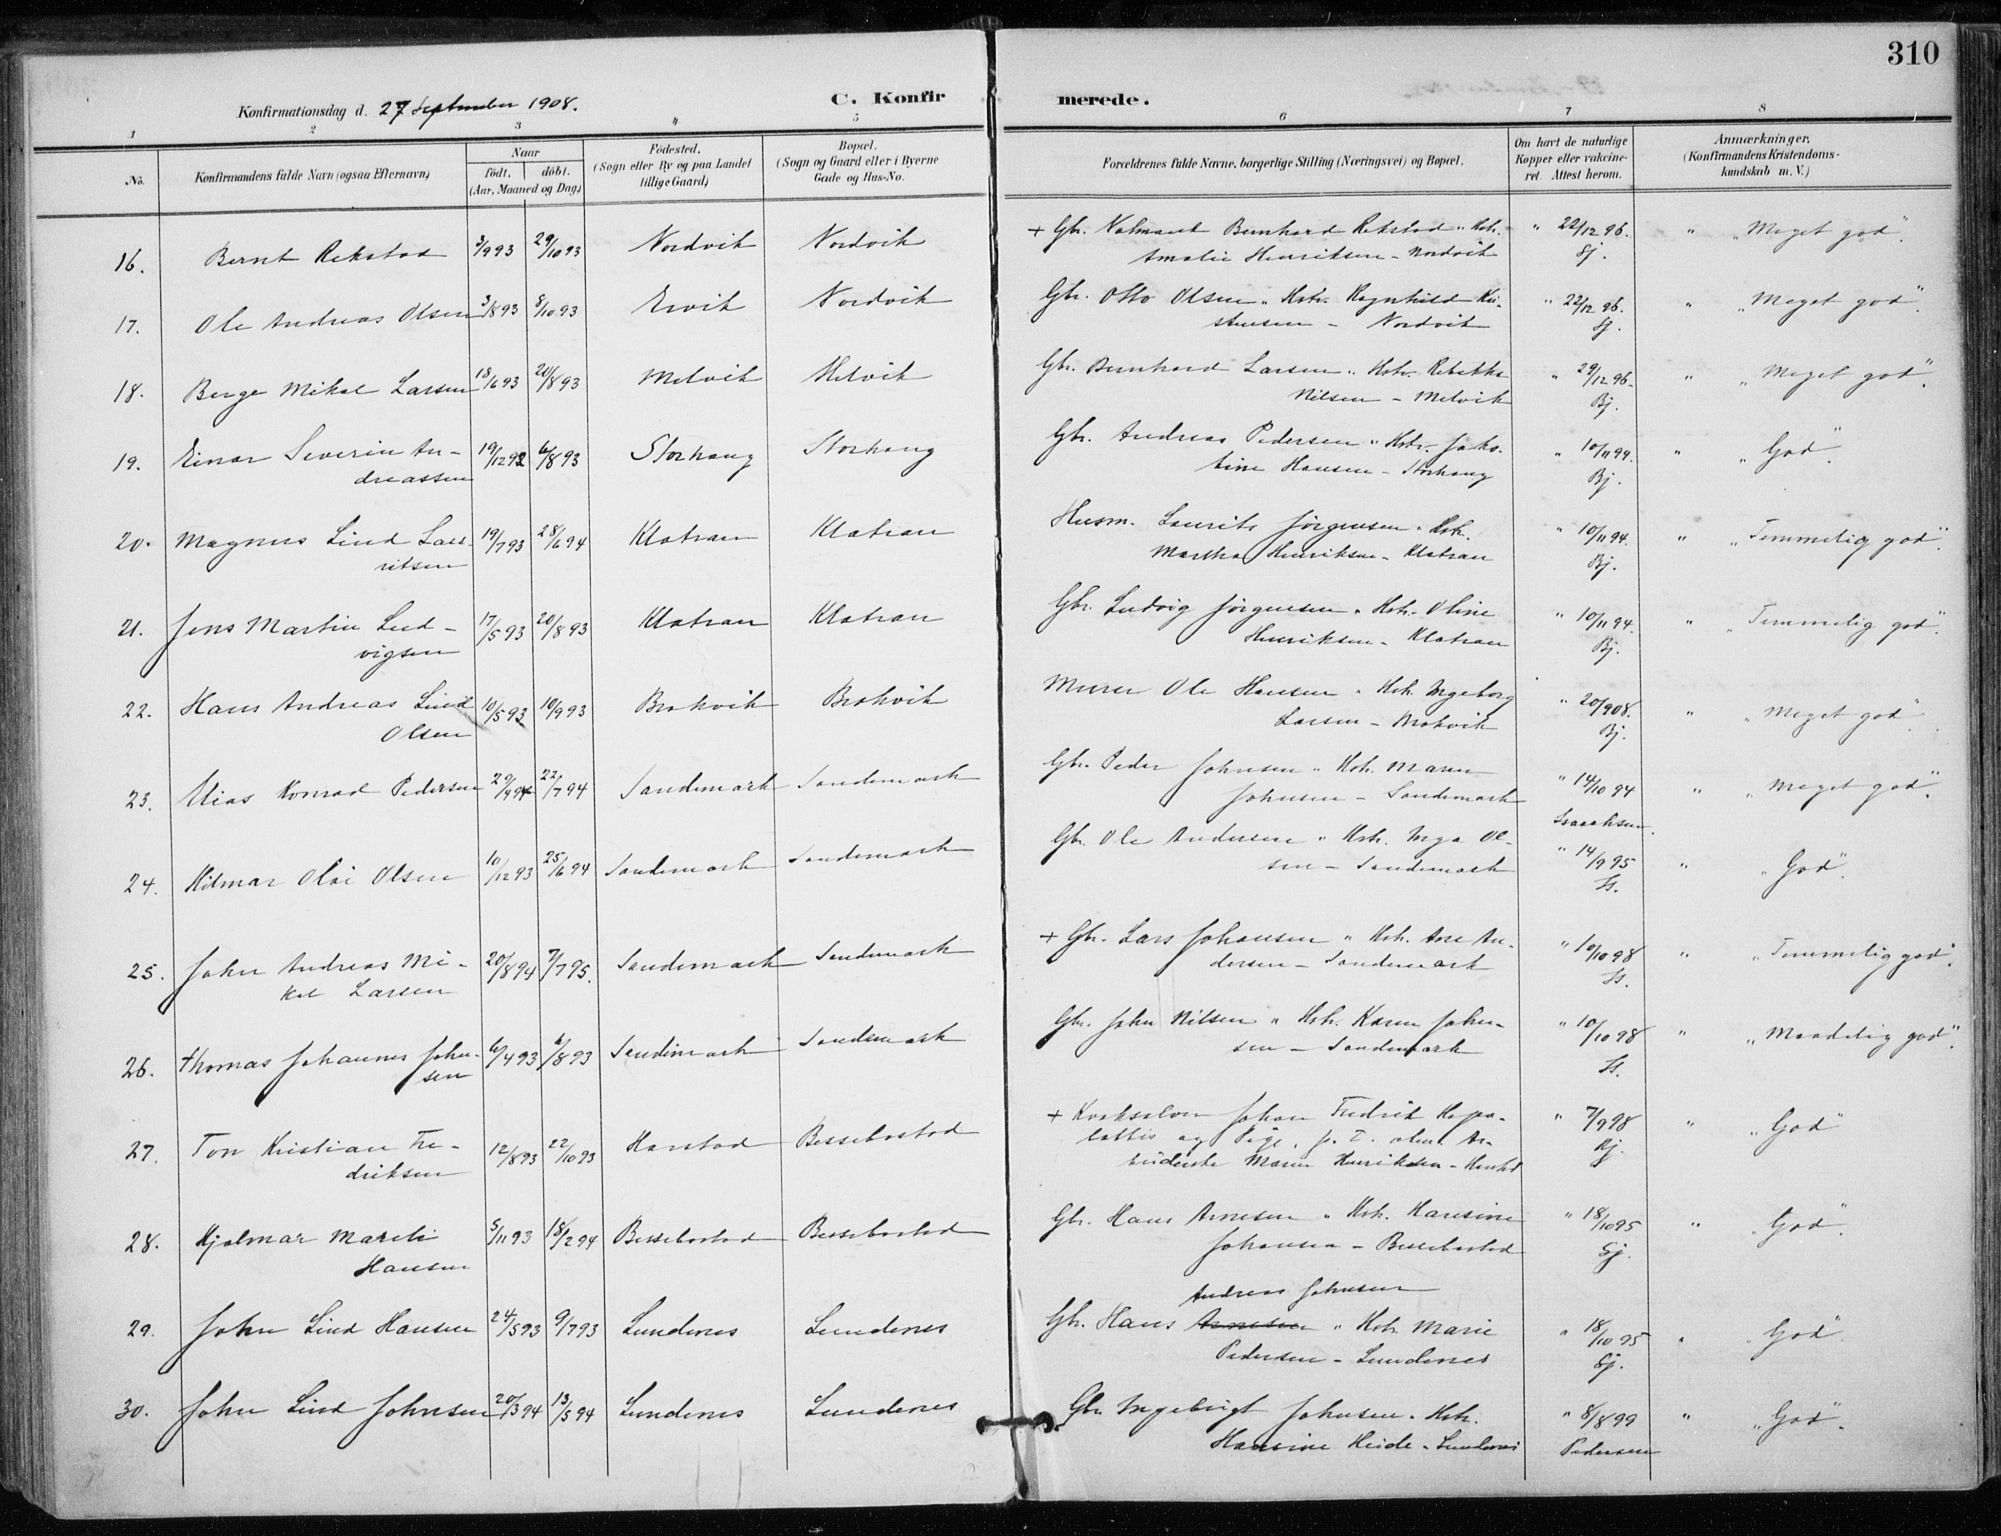 310
Konfirmationsdag d. 27 September 1908.
C. Konfir
merede.
1 2 3 4 5 6 7 8
No.
Konfirmandens fulde Navn (ogsaa Efternavn)
Naar
født. døbt.
(Aar, Maaned og Dag.)
Fødested.
(Sogn eller By og paa Landet
tillige Gaard)
Bopæl.
(Sogn og Gaard eller i Byerne
Gade og Hus-No.
Forældrenes fulde Navne, borgerlige Stilling (Næringsvei) og Bopæl.
Om havt de naturlige
Kopper eller vakcine-
ret. Attest herom.
Anmærkninger.
(Konfirmandens Kristendoms-
kundskab m. V.)
16. Bernt Rekstad 3/9 93 29/10 93 Nordvik Nordvik + Gbr. Bernhard Rekstad " Hstr. " 22/12 96. " "Meget god".
Amalie Henriksen - Nordvik Sj.
17. Ole Andreas Olsen 3/8 93 8/10 93 Ervik Nordvik Gbr. Otto Olsen " Hstr. Ragnhild Kri- " 22/12 96. " "Meget god".
stensen - Nordvik Sj.
18. Berge Mikal Larsen 18/6 93 20/8 93 Melvik Melvik Gbr. Bernhard Larsen " Hstr. Rebekka " 29/12 96. " "Meget god".
Nilsen - Melvik Bj.
19. Einar Severin An- 19/12 92 6/8 93 Storhaug Storhaug Gbr. Andreas Pedersen " Hstr. Jako- " 10/11 94. " "God".
dreassen bine Hansen - Storhaug Bj.
20. Magnus Lind Lau- 19/7 93 28/6 94 Klatran Klatran Husm. Laurits Jørgensen " Hstr. " 10/11 94. " "Temmelig god".
ritsen Martha Henriksen - Klatran Bj.
21. Jens Martin Lud- 17/5 93 20/8 93 Klatran Klatran Gbr. Ludvig Jørgensen " Hstr. Oline " 10/11 94. " "Temmelig god".
vigsen Henriksen - Klatran Bj.
22. Hans Andreas Lind 10/5 93 10/9 93 Brokvik Brokvik Murer Ole Hansen " Hstr. Ingeborg " 20/9 08. " "Meget god".
Olsen Larsen - Brokvik Bj.
23. Elias Konrad Pedersen 29/4 94 22/7 94 Sandemark Sandemark Gbr. Peder Johnsen " Hstr. Maren " 14/10 94 " "Meget god".
Johnsen - Sandemark Isaachsen.
24. Hilmar Olai Olsen 10/12 93 25/6 94 Sandemark Sandemark Gbr. Ole Andersen " Hstr. Inga Ol- " 14/9 95 " "God".
sen - Sandemark Is.
25. John Andreas Mi- 20/8 94 7/7 95. Sandemark Sandemark + Gbr. Lars Johansen " Hstr. Ane An- " 10/10 98 " "Temmelig god".
kal Larsen dersen - Sandemark Is.
26. Thomas Johannes John- 6/4 93 6/8 93 Sandemark Sandemark Gbr. John Nilsen " Hstr. Karen John- " 10/10 98 " "Maadelig god".
sen sen - Sandemark Is.
27. Ton Kristian Fre- 12/8 93 22/10 93 Harstad Bessebostad + Johan Fredrik " 7/9 98 " "God"
driksen og Pige, p. t. Bj.
Maren Henriksen - Harstad
28. Hjalmar Mareli 5/11 93 18/2 94 Bessebostad Bessebostad Gbr. Hans Arnesen " Hstr. Hansine " 18/10 95 " "God".
Hansen Johansen - Bessebostad Sj.
Andreas Johnsen
29. John Lind Hansen 24/5 93 9/7 93 Lundenes Lundenes Gbr. Hans Arnesen " Hstr. Marie " 18/10 95 " "God".
Pedersen - Lundenes Sj.
30. John Lind Johnsen 20/3 94 13/5 94 Lundenes Lundenes Gbr. Ingebrigt Johnsen " Hstr. " 8/8 99 " "God".
Hansine Heide - Lundenes Pedersen